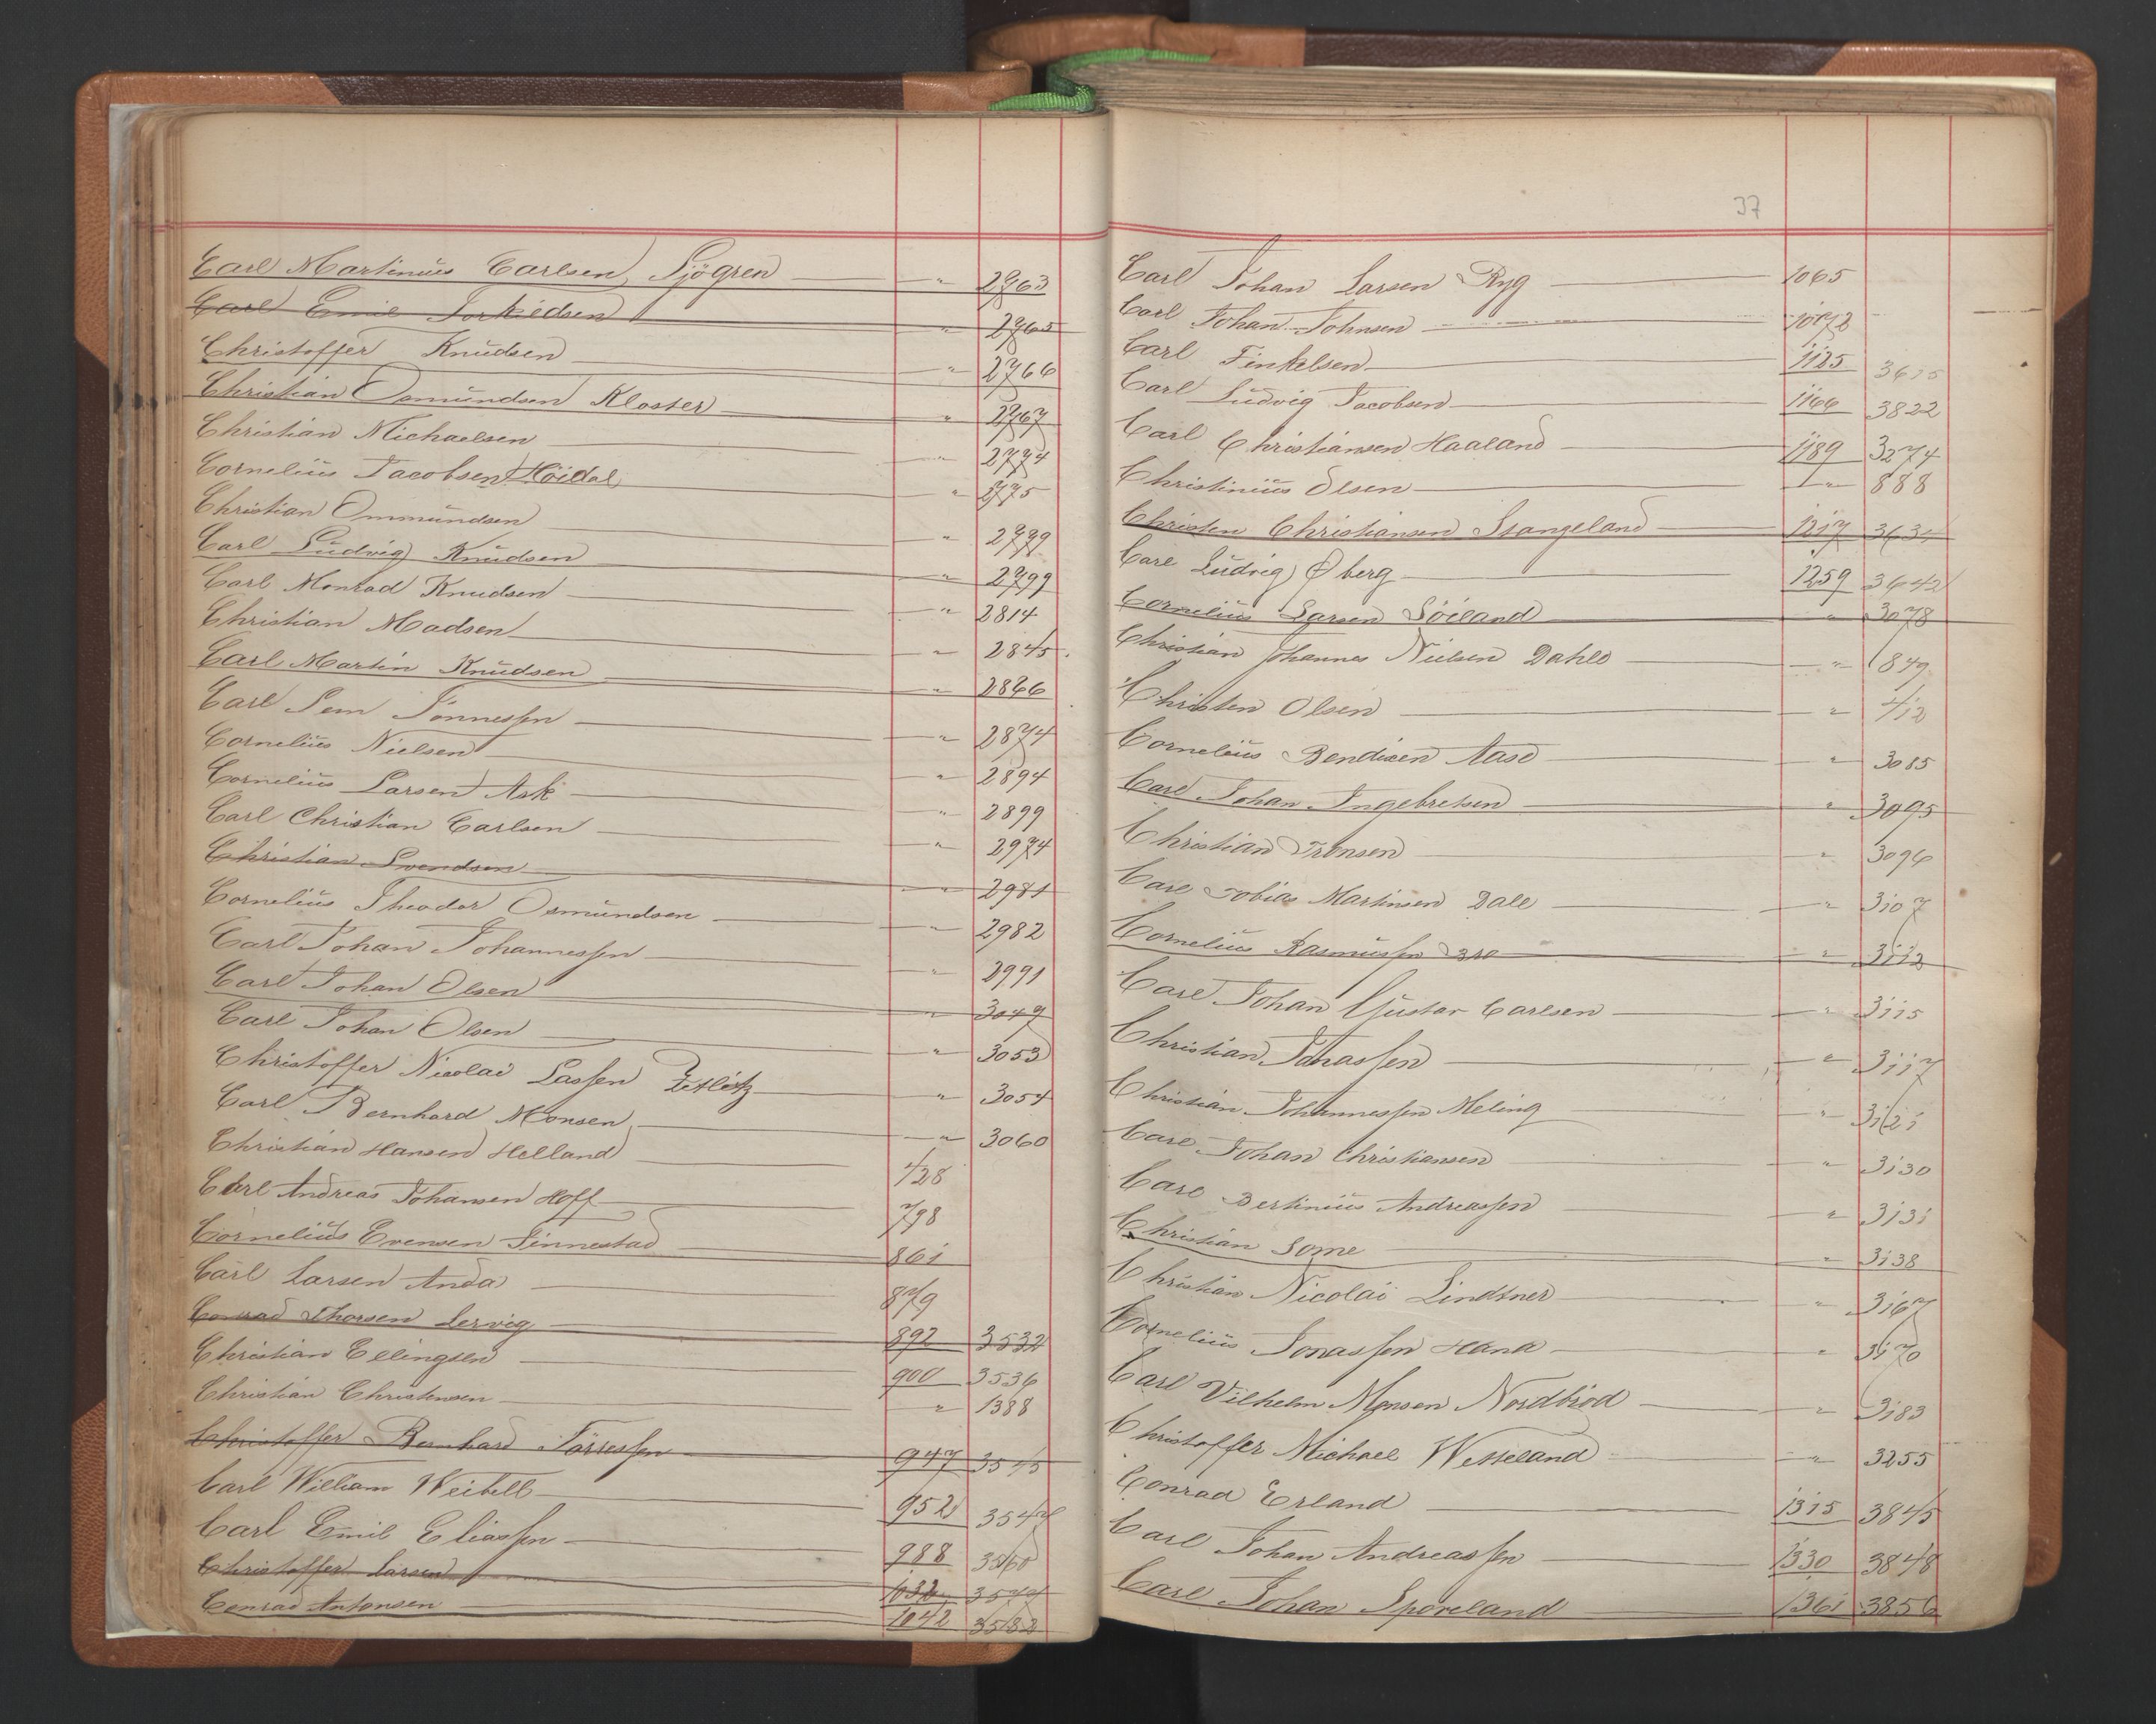 Carl Martinus Carlsen, Sjögren " 2763
Carl Emil Torkildsen " 2765
Christoffer Knudsen " 2766
Christian Osmundsen Kloster " 2767
Christian Michaelsen " 2774
Cornelius Jacobsen Höidal " 2775
Christian Ommundsen " 2779
Carl Ludvig Knudsen " 2799
Carl Monrad Knudsen " 2814
Christian Madsen " 2845
Carl Martin Knudsen " 2866
Carl Sem Tönnessen " 2874
Cornelius Nielsen " 2894
Cornelius Larsen Ask " 2899
Carl Christian Carlsen " 2974
Christian Svendsen " 2981
Cornelius Theodor Osmundsen " 2982
Carl Johan Johannessen " 2991
Carl Johan Olsen " 3049
Carl Johan Olsen " 3053
Christoffer Nicolai Lassen Zetlitz " 3054
Carl Bernhard Monsen " 3060
Christian Hansen Helland 428
Carl Andreas Johansen Hoff 798
Cornelius Evensen Tinnestad 861
Carl Larsen Anda 879
Conrad Thorsen Lervig 892 3532
Christian Ellingsen 900 3536
Christian Christensen " 1388
Christoffer Bernhard Törressen 947 3545
Carl William Weibell 952 3547
Carl Emil Eliassen 988 3560
Christoffer Larsen 1032 3579
Conrad Antonsen 1042 3582
37
Carl Johan Larsen Ryg 1065
Carl Johan Johnsen 1072
Carl Finkelsen 1125 3615
Carl Ludvig Jacobsen 1166 3822
Carl Christiansen Haaland 1189 3274
Christinius Olsen " 888
Christen Christiansen Stangeland 1217 3634
Carl Ludvig Øberg 1259 3642
Cornelius Larsen Söiland " 3078
Christian Johannes Nielsen Dahle " 849
Christen Olsen " 412
Cornelius Bendixen Aase " 3085
Carl Johan Ingebretsen " 3095
Christian Tronsen " 3096
Carl Tobias Martinsen Dale " 3107
Cornelius Rasmussen Bro " 3112
Carl Johan Gustav Carlsen " 3115
Christian Jonassen " 3117
Christian Johannessen Meling " 3121
Carl Johan Christiansen " 3130
Carl Bertinius Andreassen " 3131
Christian Some " 3138
Christian Nicolai Lindtner " 3167
Cornelius Jonassen Hana " 3170
Carl Vilhelm Monsen Nordbröd " 3183
Christoffer Michael Wesseland " 3255
Conrad Erland 1315 3845
Carl Johan Andreassen 1330 3848
Carl Johan Sporeland 1361 3856